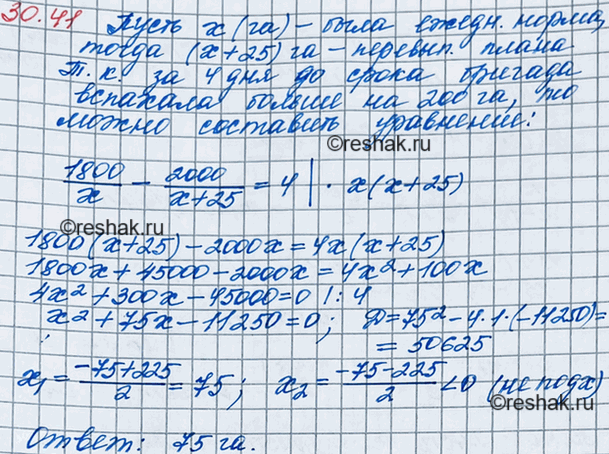 30.41 Пусть x (га) – была ежедн. норма,
тогда (x+25) га – перевып. плана
Т. к. за 4 дня до срока бригада
вспахала больше на 200 га, то
можно составить уравнение:
©reshak.ru
1800/x – 2000/(x+25) = 4 | · x(x+25)
©reshak.ru
1800(x+25) – 2000x = 4x(x+25)
1800x + 45000 – 2000x = 4x² + 100x
4x² + 300x – 45000 = 0 | : 4
x² + 75x – 11250 = 0; D = 75² – 4·1·(–11250) =
= 50625
x₁ = (–75+225)/2 = 75; x₂ = (–75–225)/2 < 0 (не подх)
©reshak.ru
Ответ: 75 га.